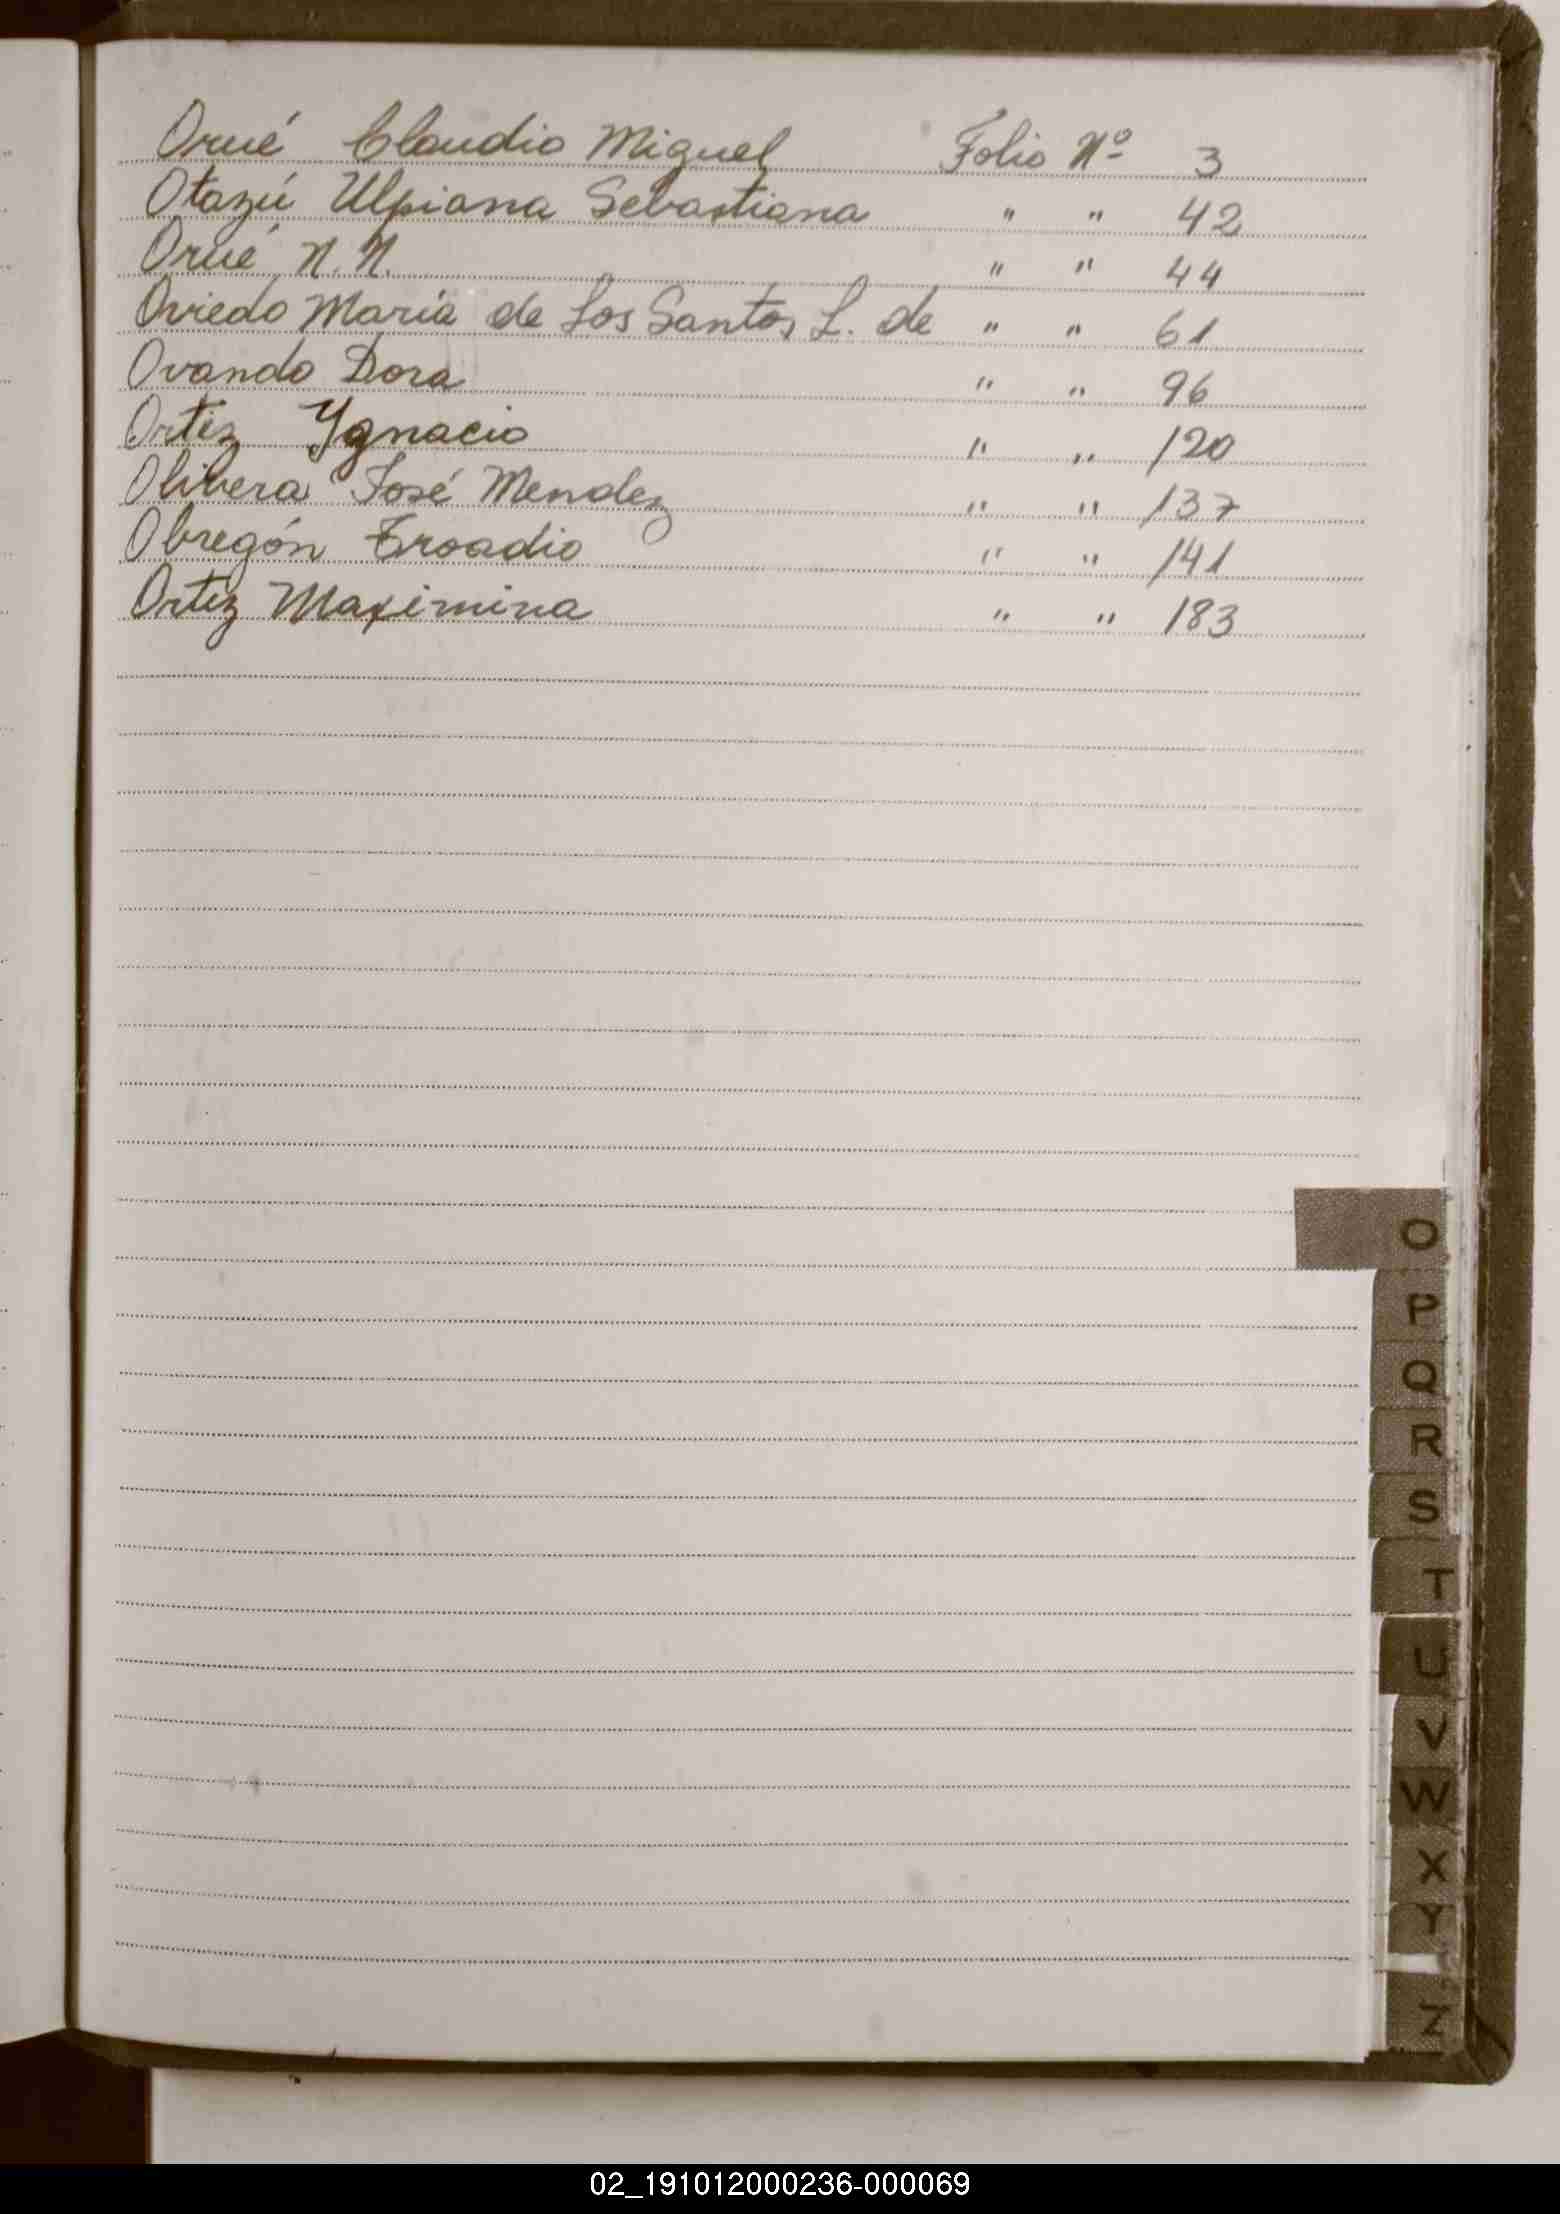 Orué Claudio Miguel Folio Nº 3
Otazú Ulpiana Sebastiana " " 42
Orué N. N. " " 44
Oviedo Maria de Los Santos L. de " " 61
Ovando Dora " " 96
Ortiz Ygnacio " " 120
Olibera José Mendez " " 137
Obregón Troadio " " 141
Ortiz Maximina " " 183
O
P
Q
R
S
T
U
V
W
X
Y
Z
02_191012000236-000069